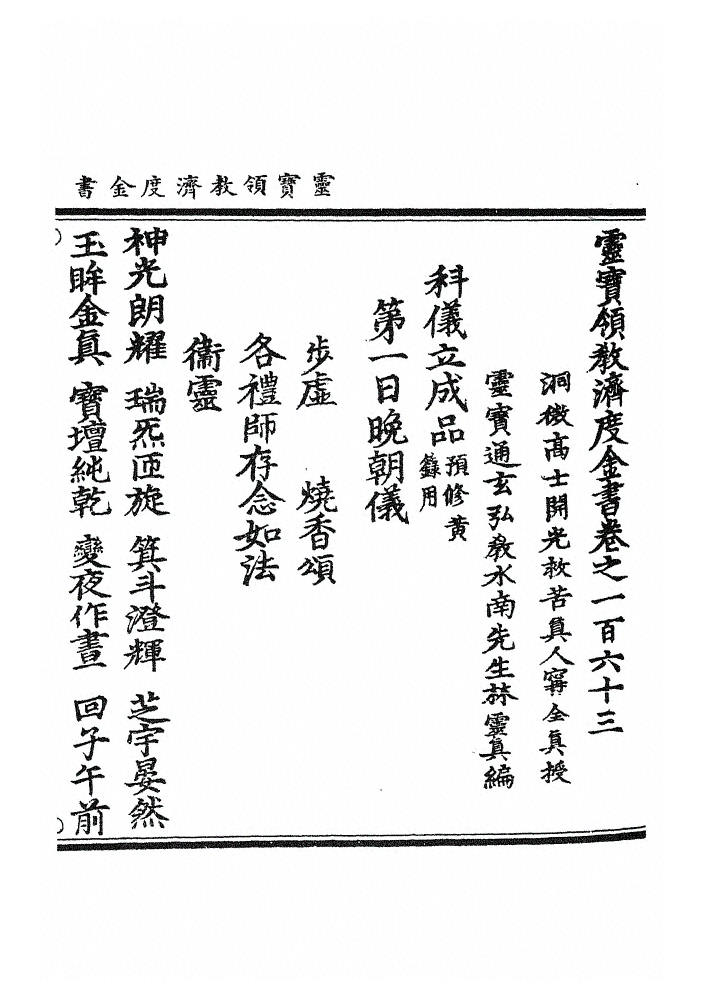 靈寶領教濟度金書
靈寶領教濟度金書卷之一百六十三
洞微高士開光救苦真人甯全真授
靈寶通玄弘教水南先生林靈真編
科儀立成品預修黃籙用
第一日晚朝儀
步虛 燒香頌
各禮師存念如法
衞靈
神光朗耀 瑞炁匝旋 箕斗澄輝 芝宇晏然
玉眸金真 寶壇純乾 變夜作晝 回子午前